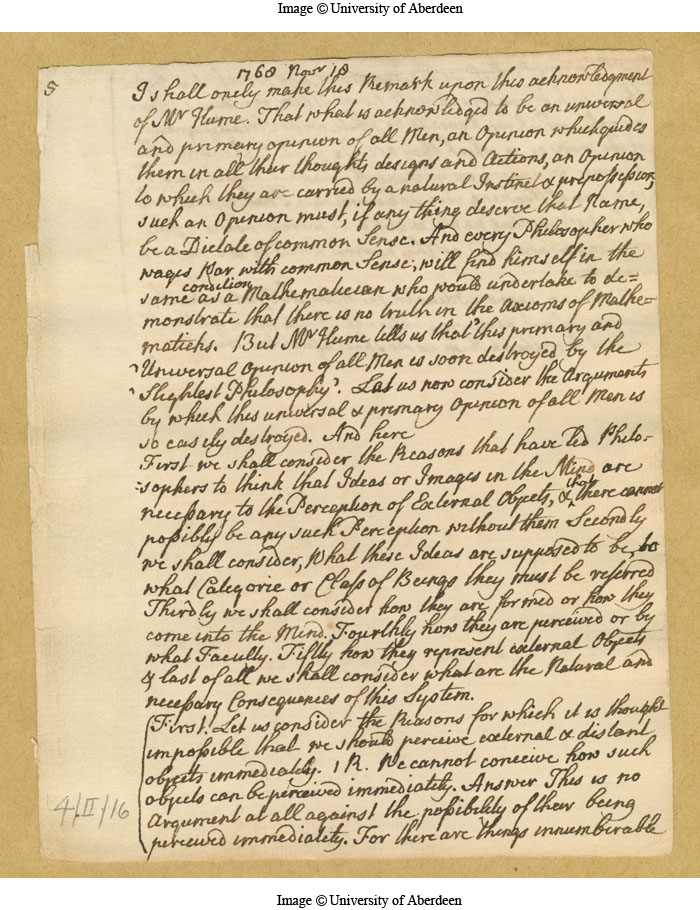 Image © University of Aberdeen
5
1768 Novr 18
I shall onely make this Remark upon this acknowledgment
of Mr Hume. That what is acknowledged to be an universal
and primary opinion of all Men, an Opinion which guides
them in all their thoughts designs and Actions, an Opinion
to which they are carried by a natural Instinct & prepossession,
such an Opinion must, if any thing deserve that Name,
be a Dictate of common Sense. And every Philosopher who
wages War with common Sense, will find himself in the
condition
same as a Mathematician who would undertake to de=
monstrate that there is no truth in the Axioms of Mathe=
maticks. But Mr Hume tells us that this primary and
Universal Opinion of all Men is soon destroyed by the
Slightest Philosophy'. Let us now consider the Arguments
by which this universal & primary Opinion of all Men is
so easily destroyed. And here
First we shall consider the Reasons that have led Philo-
=sophers to think that Ideas or Images in the Mind are
that
necessary to the Perception of External Objects, & there cannot
possibly be any such Perception without them Secondly
we shall consider, What these Ideas are supposed to be, to
what Categorie or Class of Beings they must be referred
Thirdly we shall consider how they are formed or how they
come into the Mind. Fourthly how they are perceived or by
what Faculty. Fiftly how they represent external Objects
& last of all we shall consider what are the Natural and
necessary Consequences of this System.
First. Let us consider the Reasons for which it is thought
impossible that we should perceive external & distant
objects immediately. 1 R. We cannot conceive how such
objects can be perceived immediately. Answer This is no
Argument at all against the possibility of their being
perceived immediately. For there are things innumberable
4/II/16
Image © University of Aberdeen